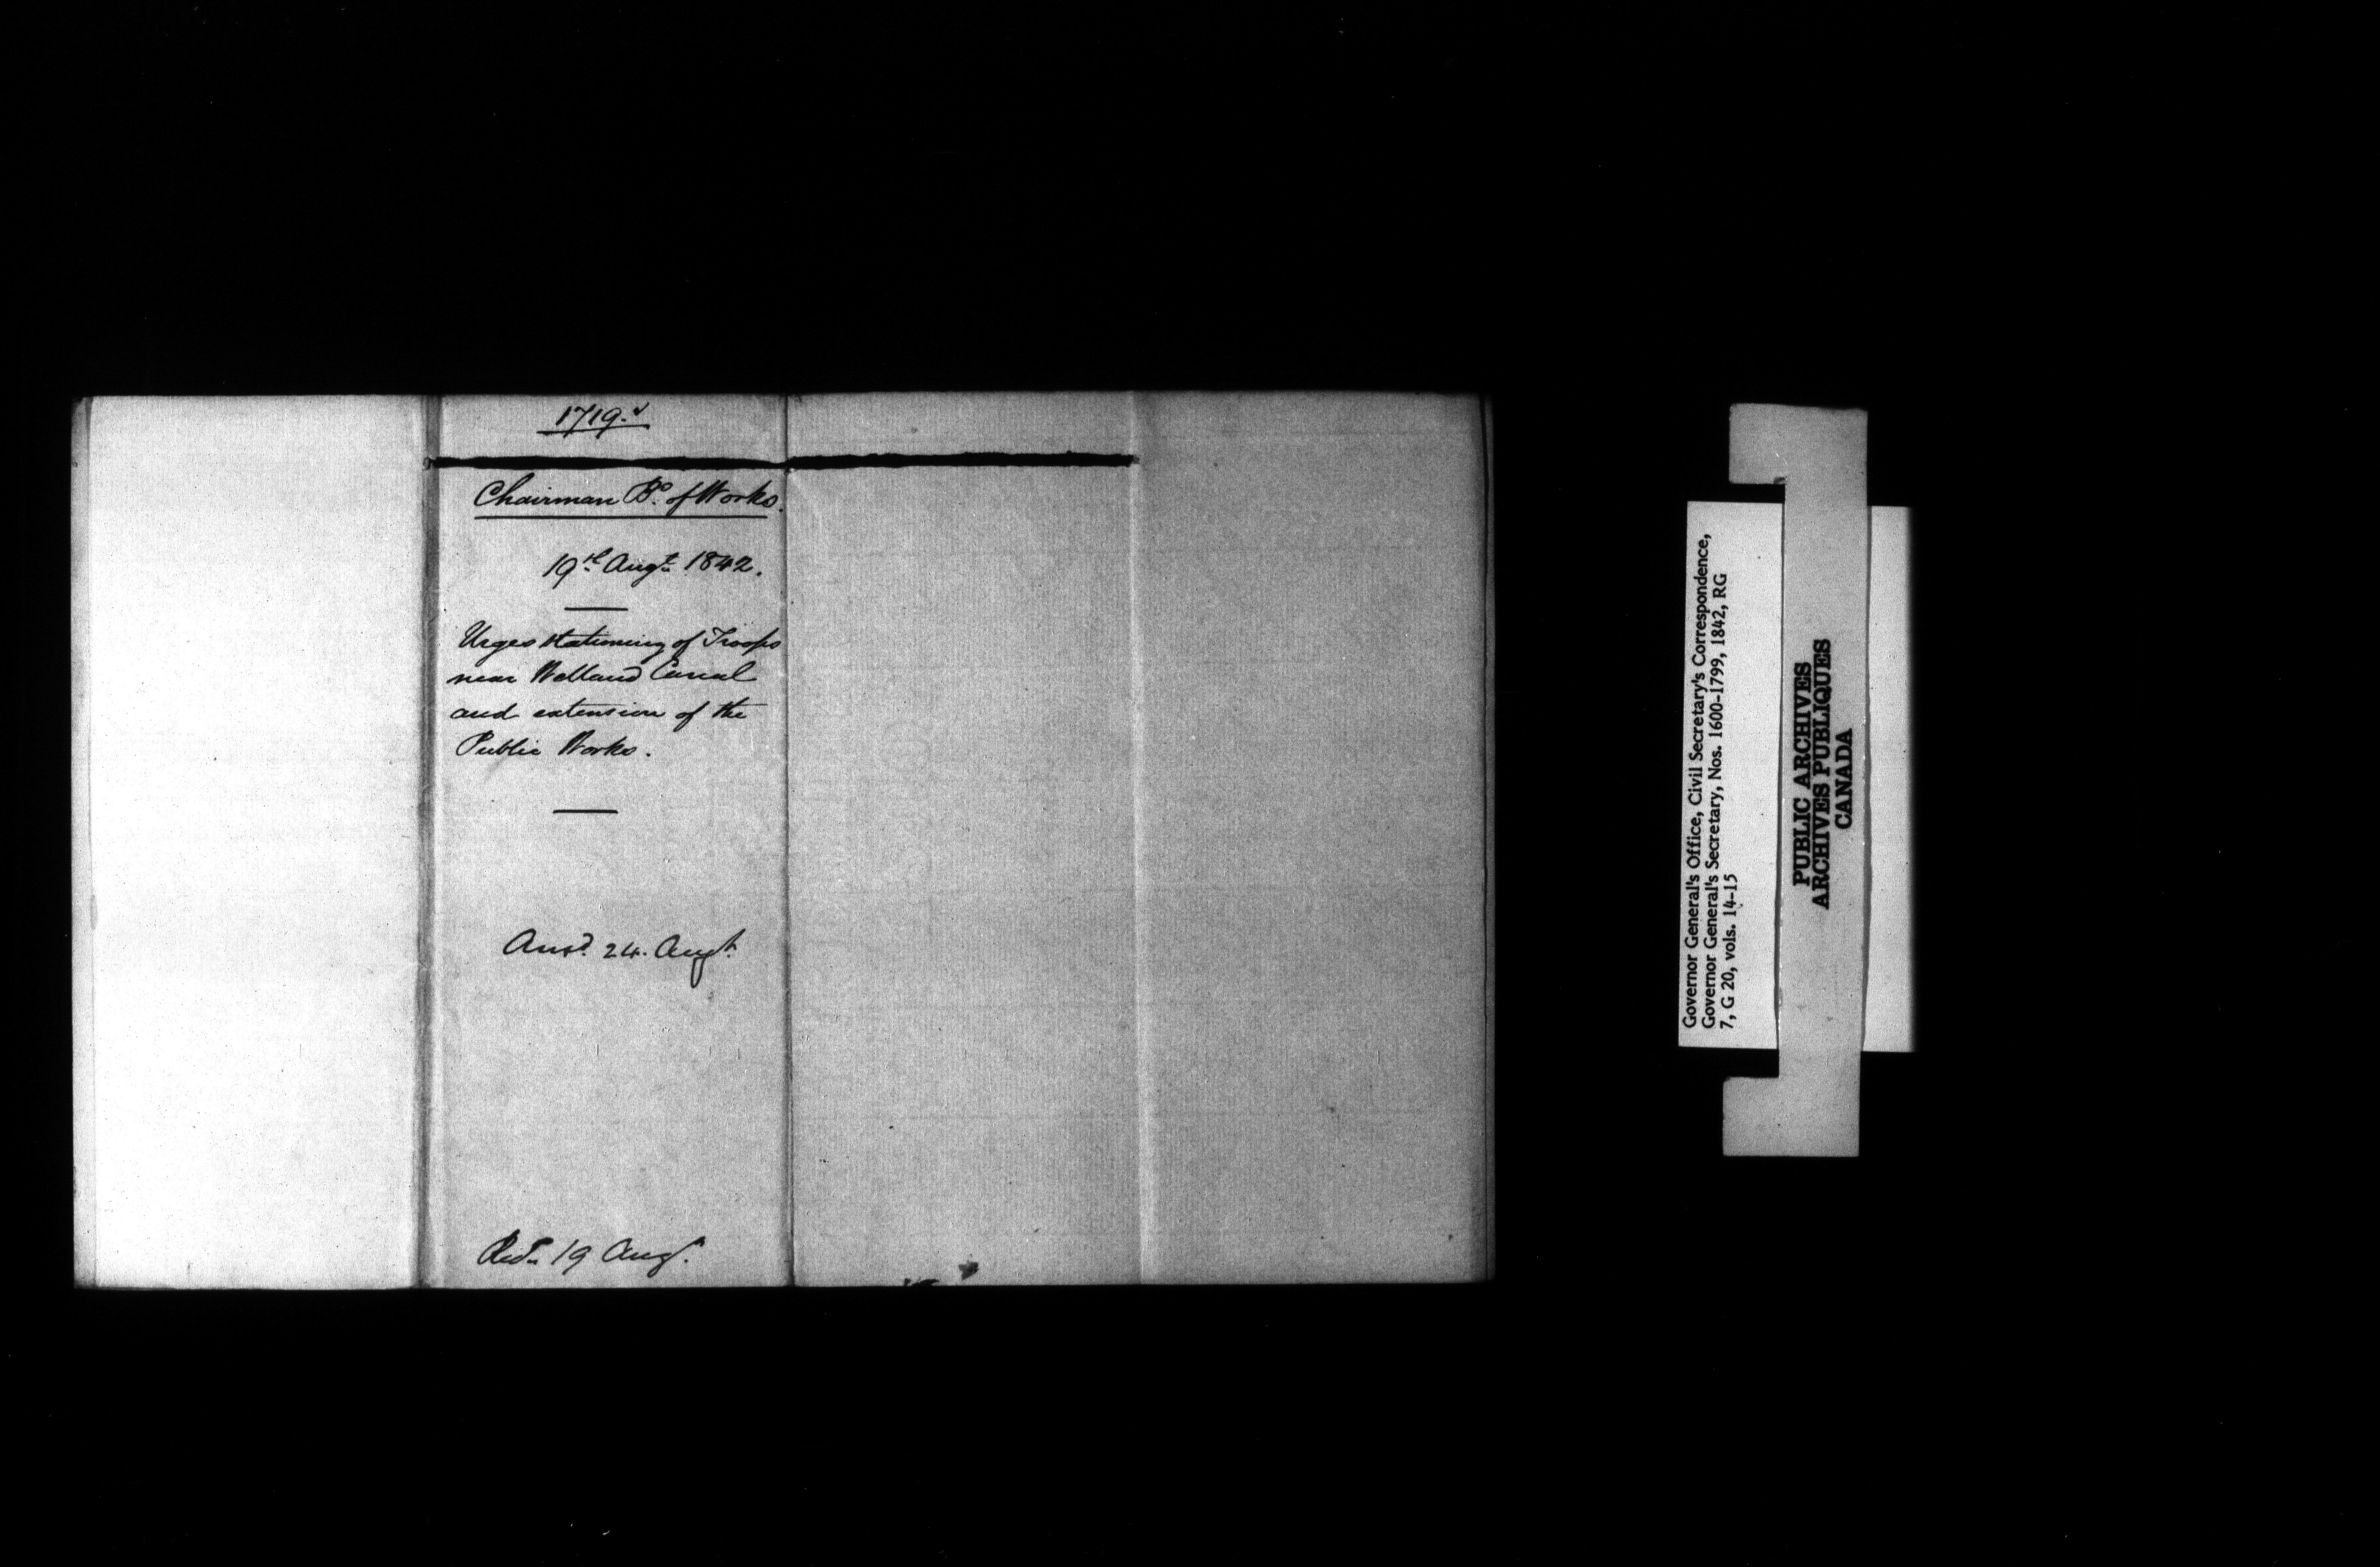 1719.
Chairman Bd. of Works.
19th Augt. 1842.
Urges stationing of Troops
near Welland Canal
and extension of the
Public Works.
Ansd. 24. Augt.
Recd. 19 Augt.
Governor General's Office, Civil Secretary's Correspondence,
Governor General's Secretary, Nos. 1600-1799, 1842, RG
7, G 20, vols. 14-15
PUBLIC ARCHIVES
ARCHIVES PUBLIQUES
CANADA